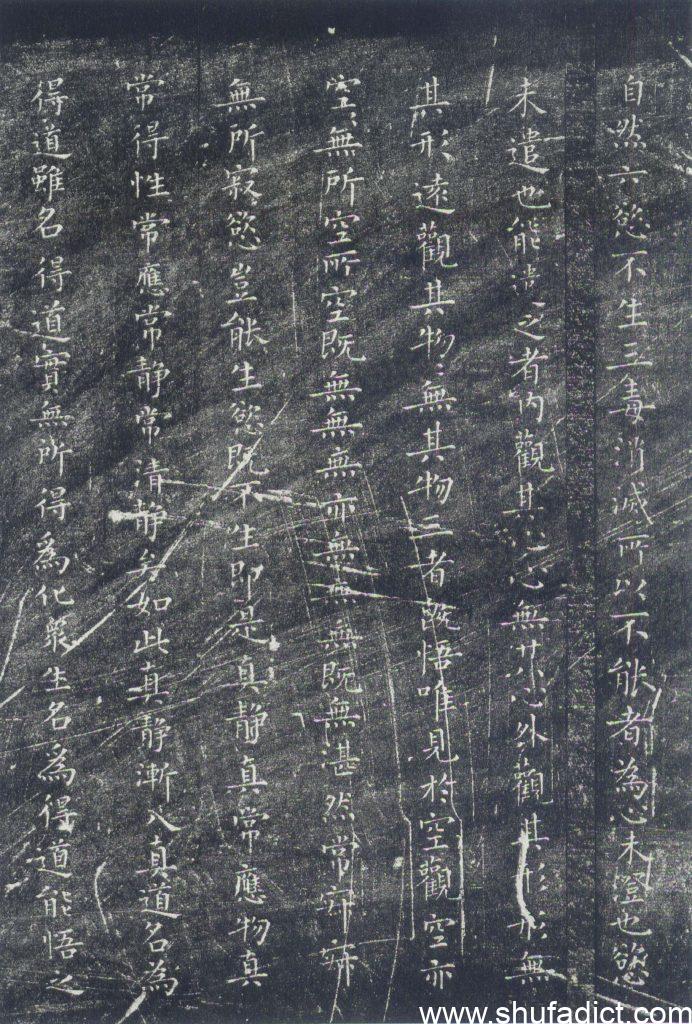 自然六慾不生三毒消滅所以不能者為心未澄也慾
未遣也能遣之者内觀其心心無其心外觀其形形無
其形遠觀其物〻無其物三者既悟唯見於空觀空亦
空〻無所空所空既無無無亦無無無既無湛然常寂寂
無所寂慾豈能生慾既不生即是真静真常應物真
常得性常應常静常清静矣如此真静漸入真道名為
得道雖名得道實無所得為化衆生名為得道能悟之
www.shufadict.com